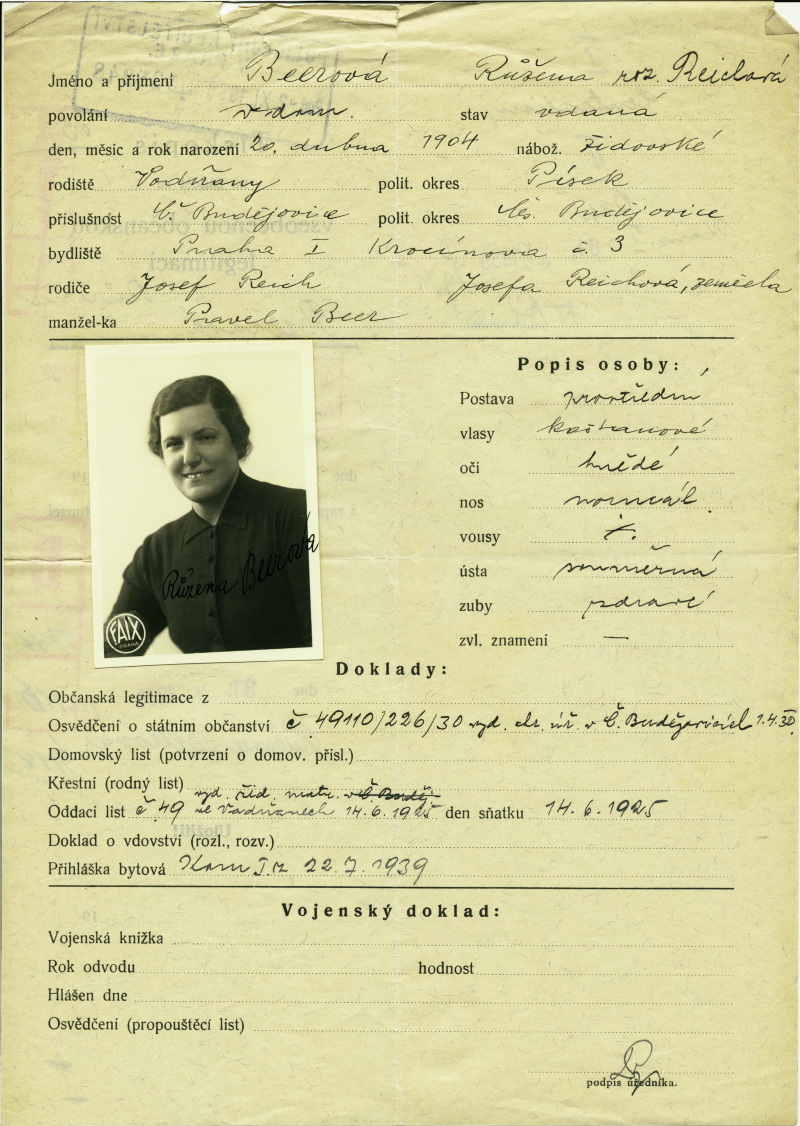 Jméno a příjmení Beerová Růžena roz. Reichová
povolání v dom. stav vdaná
den, měsíc a rok narození 20. dubna 1904 nábož. židovské
rodiště Vodňany polit. okres Písek
příslušnost Č. Budějovice polit. okres Čes. Budějovice
bydliště Praha I Krocínova č. 3
rodiče Josef Reich Josefa Reichová, zemřela
manžel-ka Pavel Beer
Popis osoby:
Postava prostřední
vlasy kaštanové
oči hnědé
nos normál.
vousy
ústa souměrná
zuby zdravé
zvl. znamení —
Růžena Beerová
FAIX
PRAHA
Doklady:
Občanská legitimace z
Osvědčení o státním občanství č 49110/226/30 vyd. okr. úř. v Č. Budějovicích 1.4.30
Domovský list (potvrzení o domov. přísl.)
Křestní (rodný list)
vyd. žid. matr. v Č. Buděj.
Oddací list č 49 ve Vodňanech 14.6.1925 den sňatku 14.6.1925
Doklad o vdovství (rozl., rozv.)
Přihláška bytová Kom I. z 22.7.1939
Vojenský doklad:
Vojenská knížka
Rok odvodu hodnost
Hlášen dne
Osvědčení (propouštěcí list)
podpis úředníka.